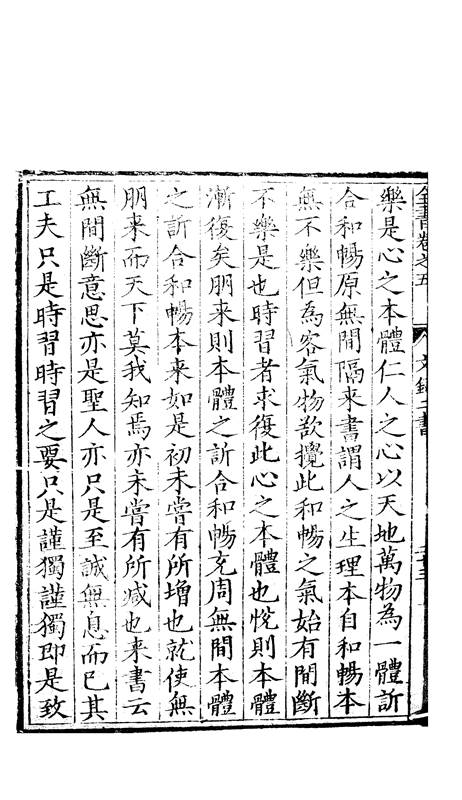 全書卷之五
文錄二書
樂是心之本體仁人之心以天地萬物為一體訢
合和暢原無間隔來書謂人之生理本自和暢本
無不樂但為客氣物欲攪此和暢之氣始有間斷
不樂是也時習者求復此心之本體也悅則本體
漸復矣朋來則本體之訢合和暢充周無間本體
之訢合和暢本來如是初未嘗有所增也就使無
朋来而天下莫我知焉亦未嘗有所减也来書云
無間斷意思亦是聖人亦只是至誠無息而已其
工夫只是時習時習之要只是謹獨謹獨即是致